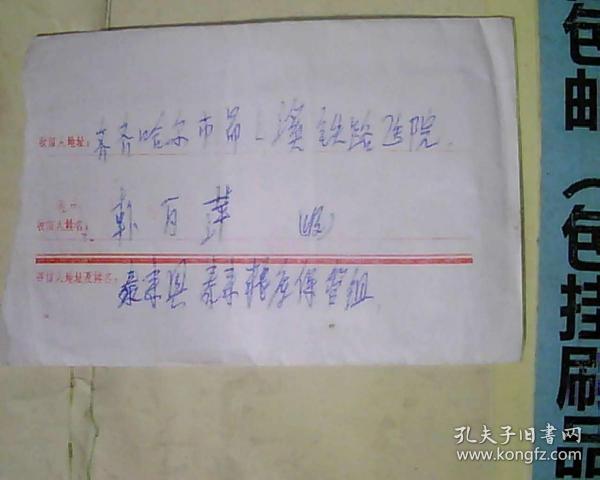 收信人地址：齐齐哈尔市昂昂溪铁路医院
收信人姓名：韩百萍 (收)
寄信人地址及姓名：泰来县泰来粮库保管组
包邮（包挂刷品
孔夫子旧书网
www.kongfz.com